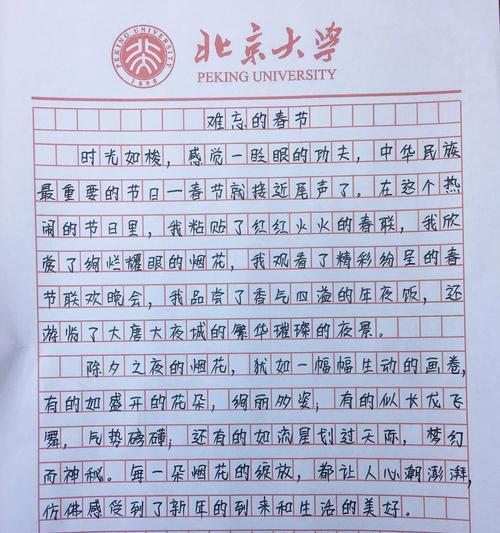 PEKING UNIVERSITY
1898
北京大学
PEKING UNIVERSITY
难忘的春节
时光如梭，感觉一眨眼的功夫，中华民族
最重要的节日一春节就接近尾声了。在这个热
闹的节日里，我粘贴了红红火火的春联，我欣
赏了绚烂耀眼的烟花，我观看了精彩纷呈的春
节联欢晚会，我品尝了香气四溢的年夜饭，还
游览了大唐大夜城的繁华璀璨的夜景。
除夕之夜的烟花，犹如一幅幅生动的画卷，
有的如盛开的花朵，绚丽多姿；有的似长龙飞
舞，气势磅礴；还有的如流星划过天际，梦幻
而神秘。每一朵烟花的绽放，都让人心潮澎湃，
仿佛感受到了新年的到来和生活的美好。